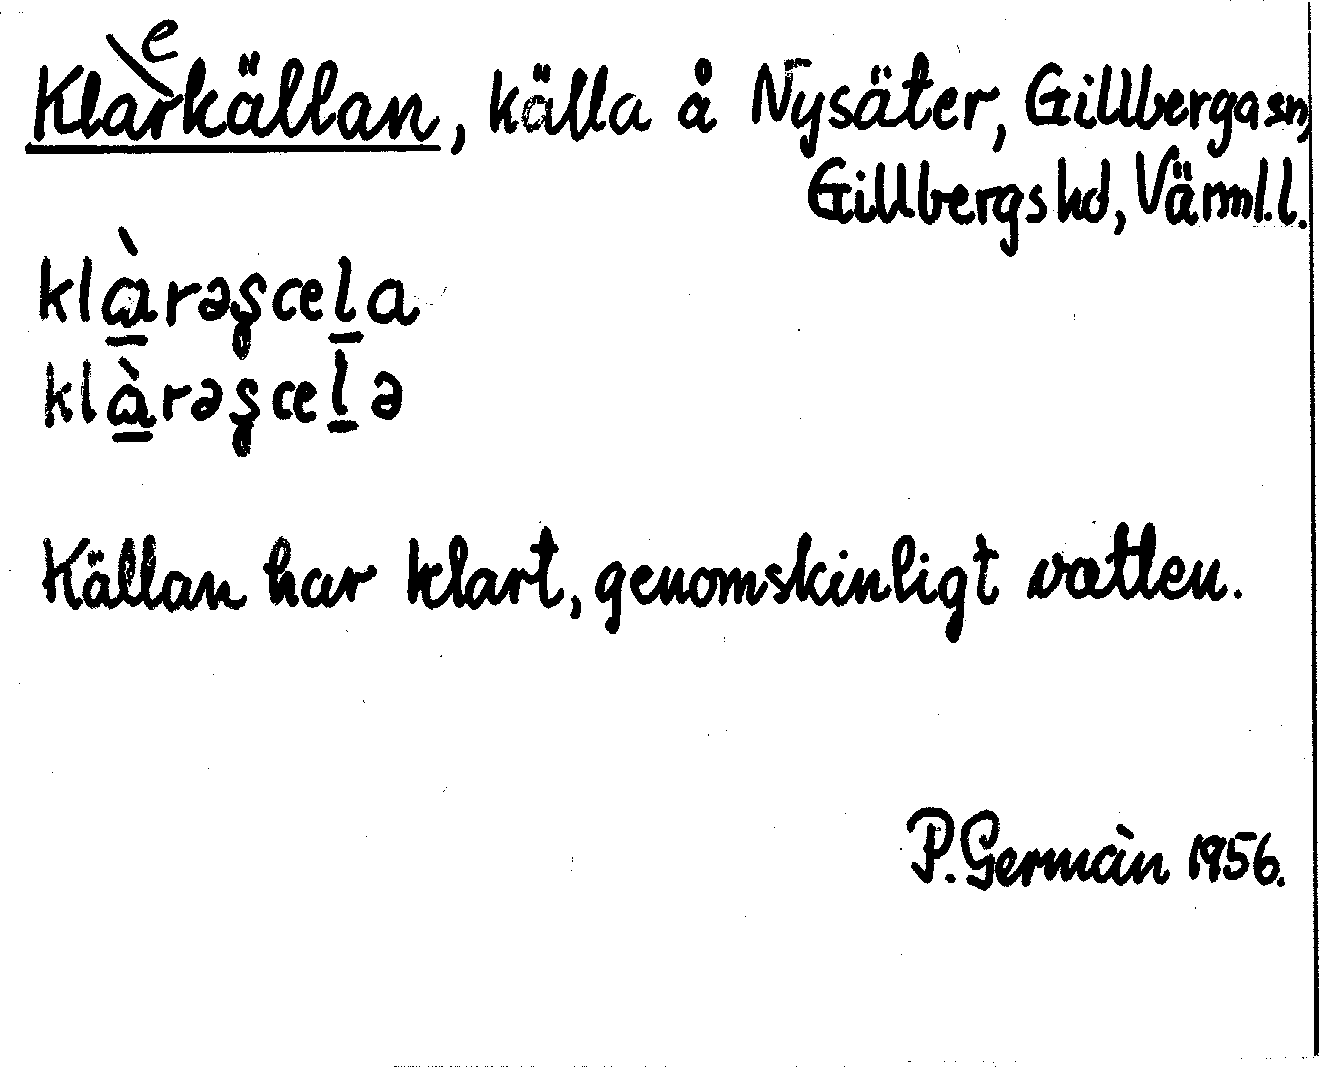 Klarekällan, källa å Nysäter, Gillberga sn,
Gillbergs hd, Värml. l.
klàrəșcela
klàrəșcelə
Källan har klart, genomskinligt vatten.
P. Germàn 1956.